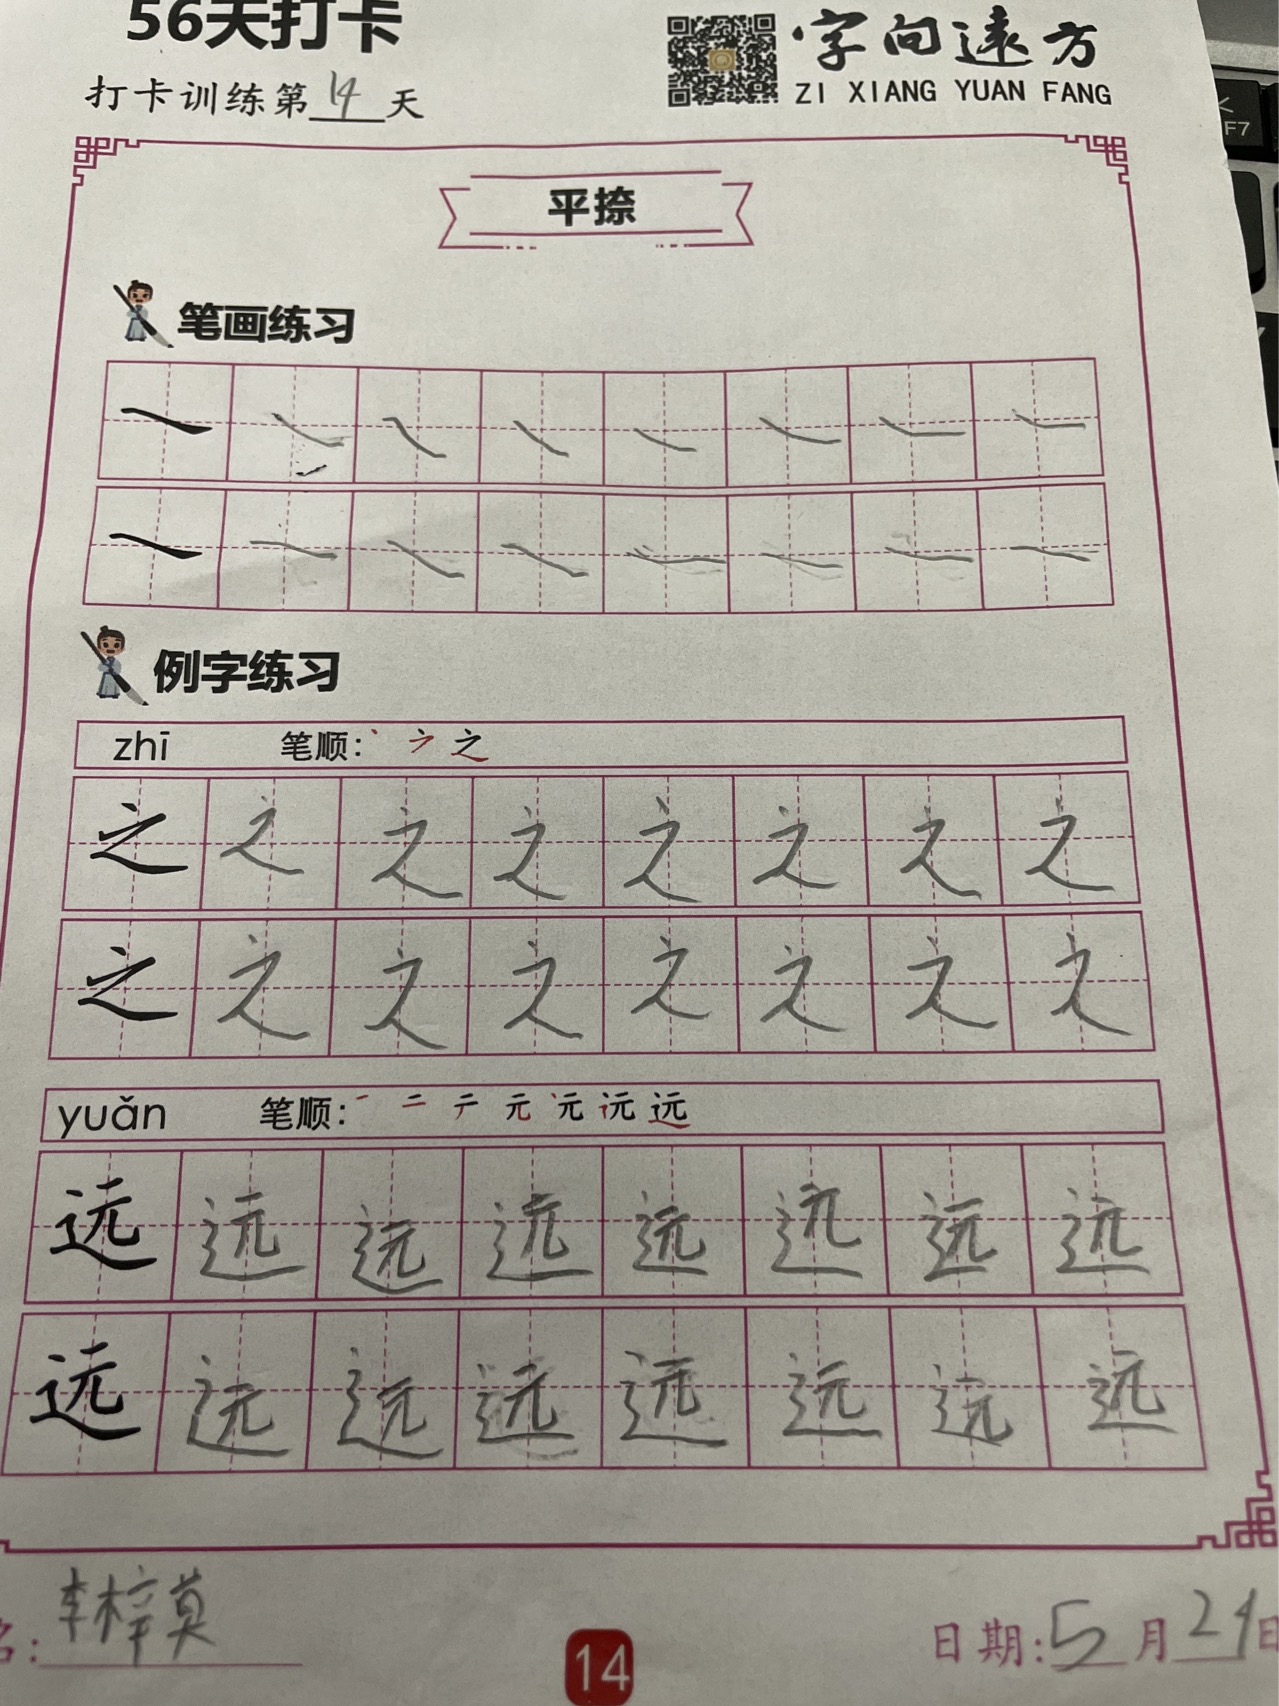 56天打卡
字向远方
ZI XIANG YUAN FANG
打卡训练第14天
平捺
笔画练习
例字练习
zhī 笔顺: 丶 之
之 之 之 之 之 之 之 之
之 之 之 之 之 之 之 之
yuǎn 笔顺: 一 二 元 远
远 远 远 远 远 远 远 远
远 远 远 远 远 远 远 远
名: 李梓萸
日期: 5月21日
14